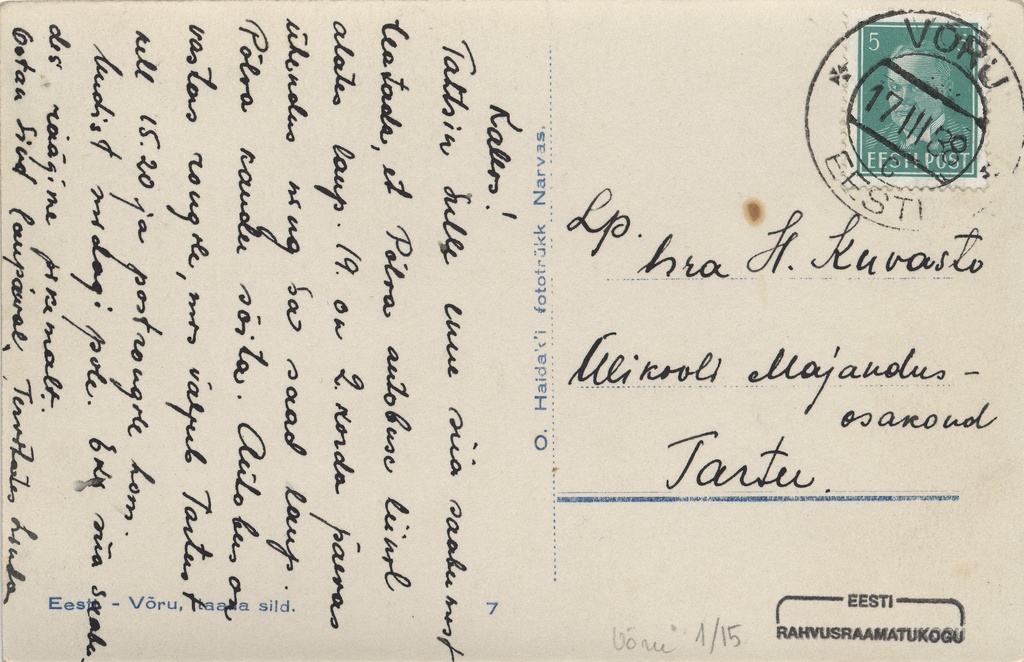 Kallis!
Tahtsin Sulle enne siia saabumist
teatada, et Põlva autobuse liinil
alates laup. 19. on 2 korda päevas
ühendus ning sa saad laup.
Põlva kaudu sõita. Autobus on
vastas rongile, mis väljub Tartust
kell 15.20 ja postrongile hom.
Uudist midagi pole. Eks siia saabu-
des räägime pikemalt.
Ootan Sind laupäeval, Tervitades Linda
O. Haidak'i fototrükk Narvas.
Eesti - Võru, Taara sild.
7
5
EESTI POST
VÕRU
17 III 38
EESTI
Lp.
hra H. Kuvasto
Ülikooli Majandus-
osakond
Tartu.
Võru 1/15
EESTI
RAHVUSRAAMATUKOGU